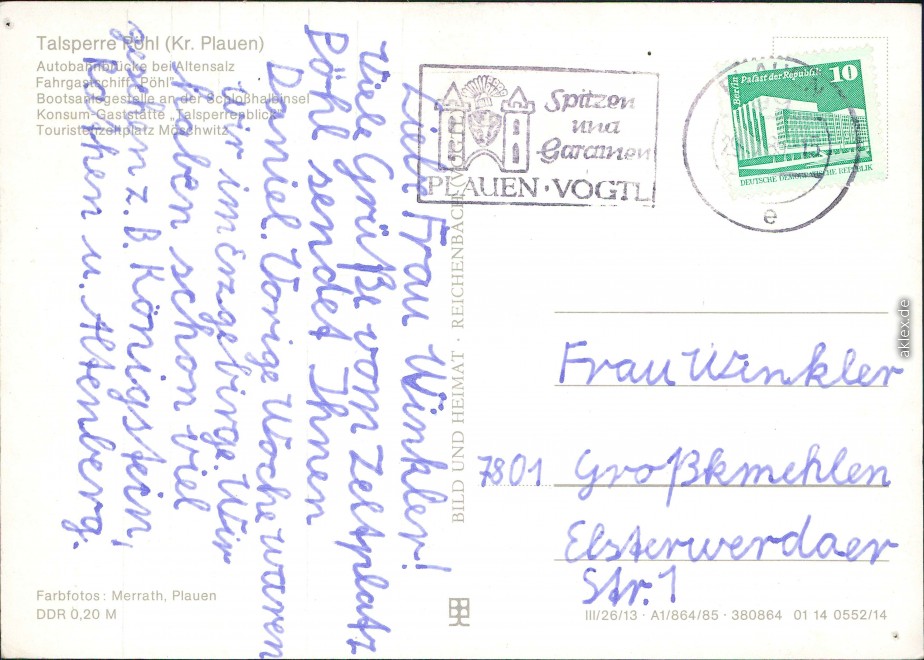 Talsperre Pöhl (Kr. Plauen)
Autobahnbrücke bei Altensalz
Fahrgastschiff „Pöhl“
Bootsanlegestelle an der Schloßhalbinsel
Konsum-Gaststätte „Talsperrenblick“
Touristenzeltplatz Möschwitz
Liebe Frau Winkler!
Viele Grüße vom Zeltplatz
Pöhl sendet Ihnen
Daniel. Vorige Woche waren
wir im Erzgebirge. Wir
haben schon viel
gesehen z.B. Königstein,
Rathen u. Altenberg.
Farbfotos: Merrath, Plauen
DDR 0,20 M
BILD UND HEIMAT · REICHENBACH
Spitzen
und
Gardinen
PLAUEN · VOGTL
e
Berlin Palast der Republik 10
DEUTSCHE DEMOKRATISCHE REPUBLIK
Frau Winkler
7801 Großkmehlen
Elsterwerdaer
Str. 1
III/26/13 · A1/864/85 · 380864 01 14 0552/14
aklex.de